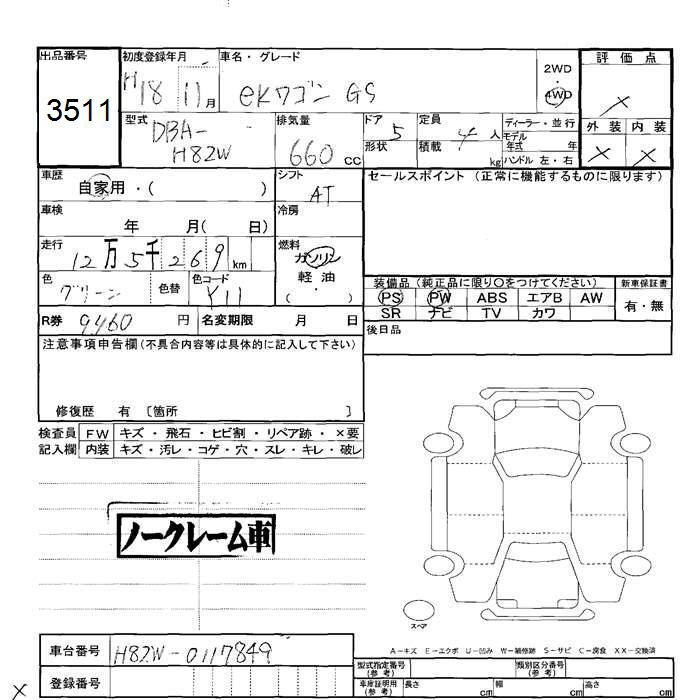 出品番号 初度登録年月 車名・グレード 評価点
3511 H18 11月 eKワゴン GS 2WD 4WD ×
外装 内装
× ×
型式 排気量 ドア 定員 ディーラー・並行
DBA-H82W 660cc 5 4人 モデル年式 年
形状 積載 kg ハンドル 左・右
車歴 シフト セールスポイント (正常に機能するものに限ります)
自家用・( ) AT
車検 冷房
年 月( 日)
走行 燃料
12万5千269km ガソリン
軽油
( )
色 色替 色コード
グリーン Y11
装備品 (純正品に限り〇をつけてください) 新車保証書
PS PW ABS エアB AW 有・無
SR ナビ TV カワ
R券 9460円 名変期限 月 日 後日品
注意事項申告欄(不具合内容等は具体的に記入して下さい)
修復歴 有 〔箇所 〕
検査員 FW キズ・飛石・ヒビ割・リペア跡・×要
記入欄 内装 キズ・汚レ・コゲ・穴・スレ・キレ・破レ
ノークレーム車
スペア
A-キズ E-エクボ U-凹み W-補修跡 S-サビ C-腐食 XX-交換済
車台番号 H82W-0117849
型式指定番号(参考) 類別区分番号(参考)
登録番号
車庫証明用(参考) 長さ cm 幅 cm 高さ cm
×